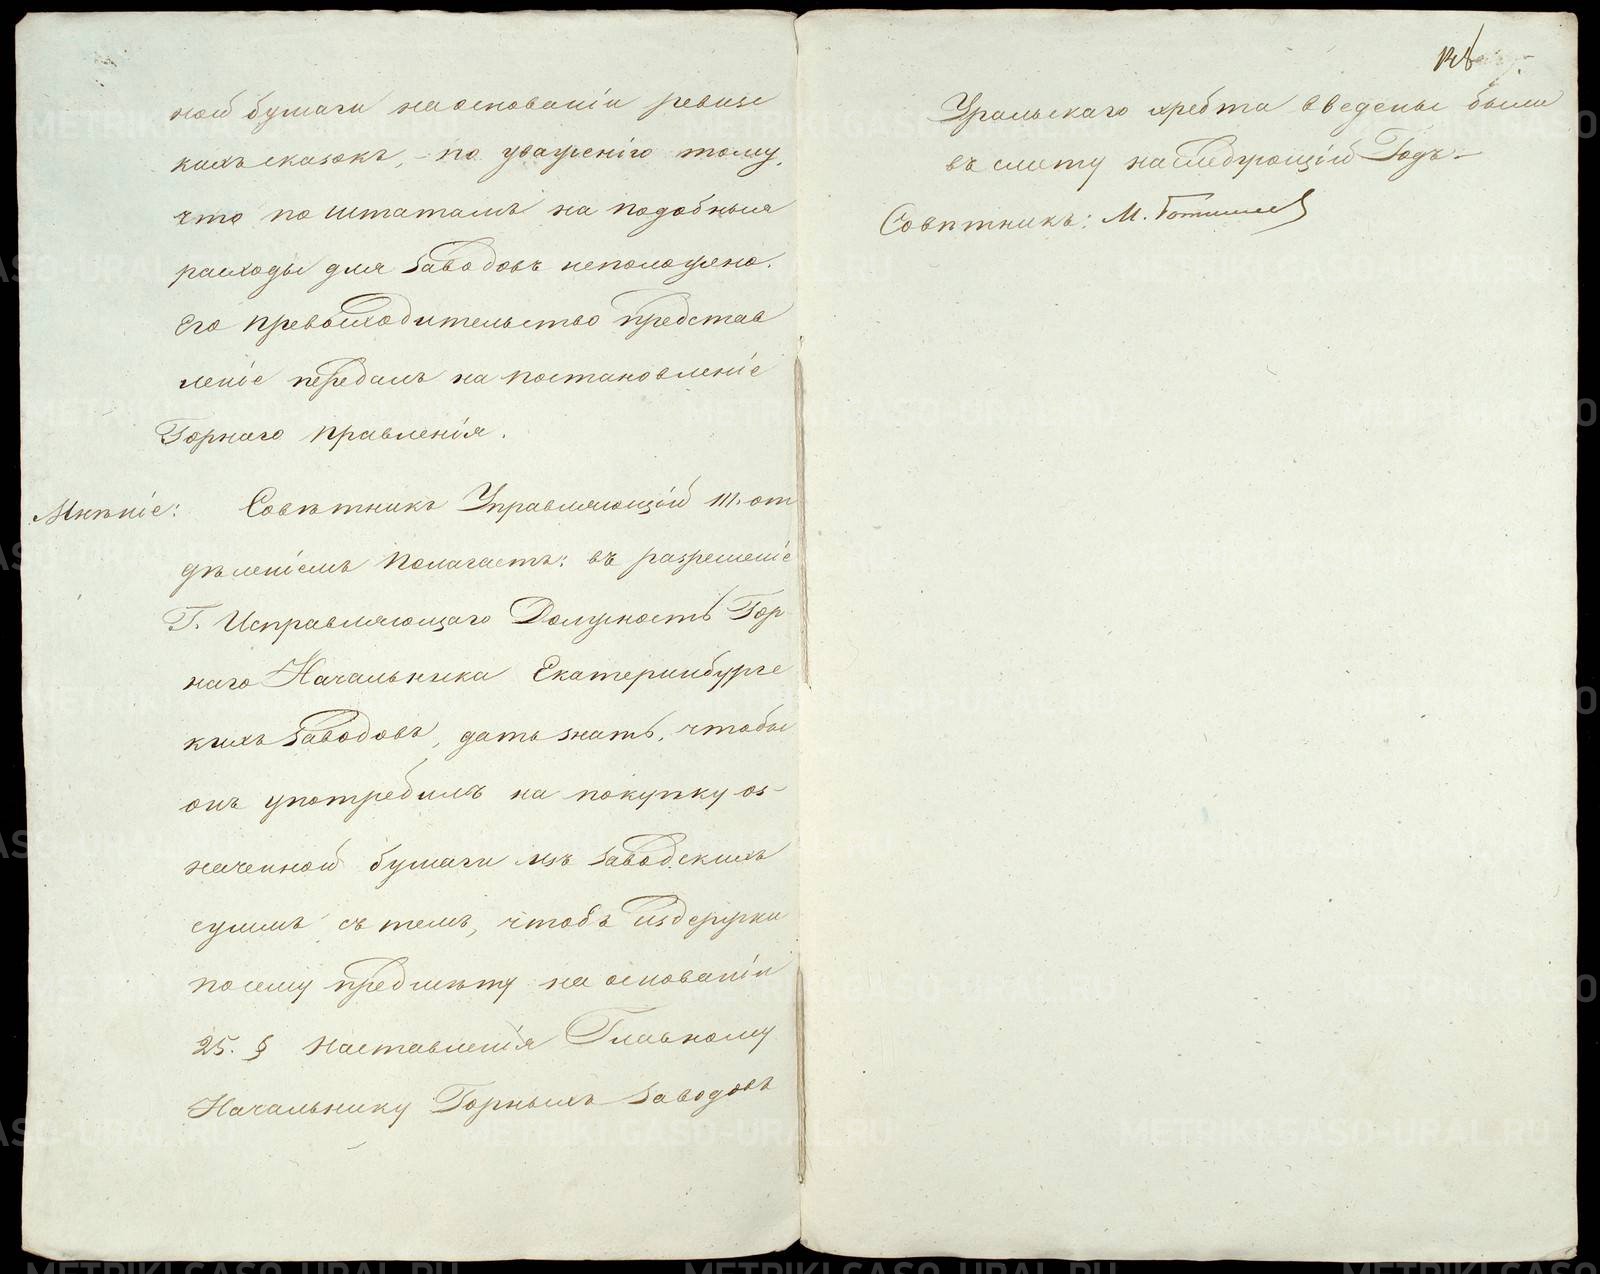 ной бумаги на основаніи ревизс
кихъ сказокъ, - по уваженію тому,
что по штатамъ на подобныя
расходы для Заводовъ неположено.
Его Превосходительство представ
леніе передалъ на постановленіе
Горнаго Правленія.
Мнѣніе: Совѣтникъ Управляющій III. от
дѣленіемъ Полагаетъ: въ разрешеніе
Г. Исправляющаго Должность Гор
наго Начальника Екатеринбургс
кихъ Заводовъ, дать знать, чтобы
онъ употребилъ на покупку оз-
наченной бумаги изъ Заводскихъ
суммъ съ темъ, чтобъ издержки
посему предмѣту на основаніи
25. § Наставленія Главному
Начальнику Горныхъ Заводовъ
Уральскаго хребта введены были
въ смету на следующій Годъ.-
Совѣтникъ: М.
METRIKI.GASO-URAL.RU